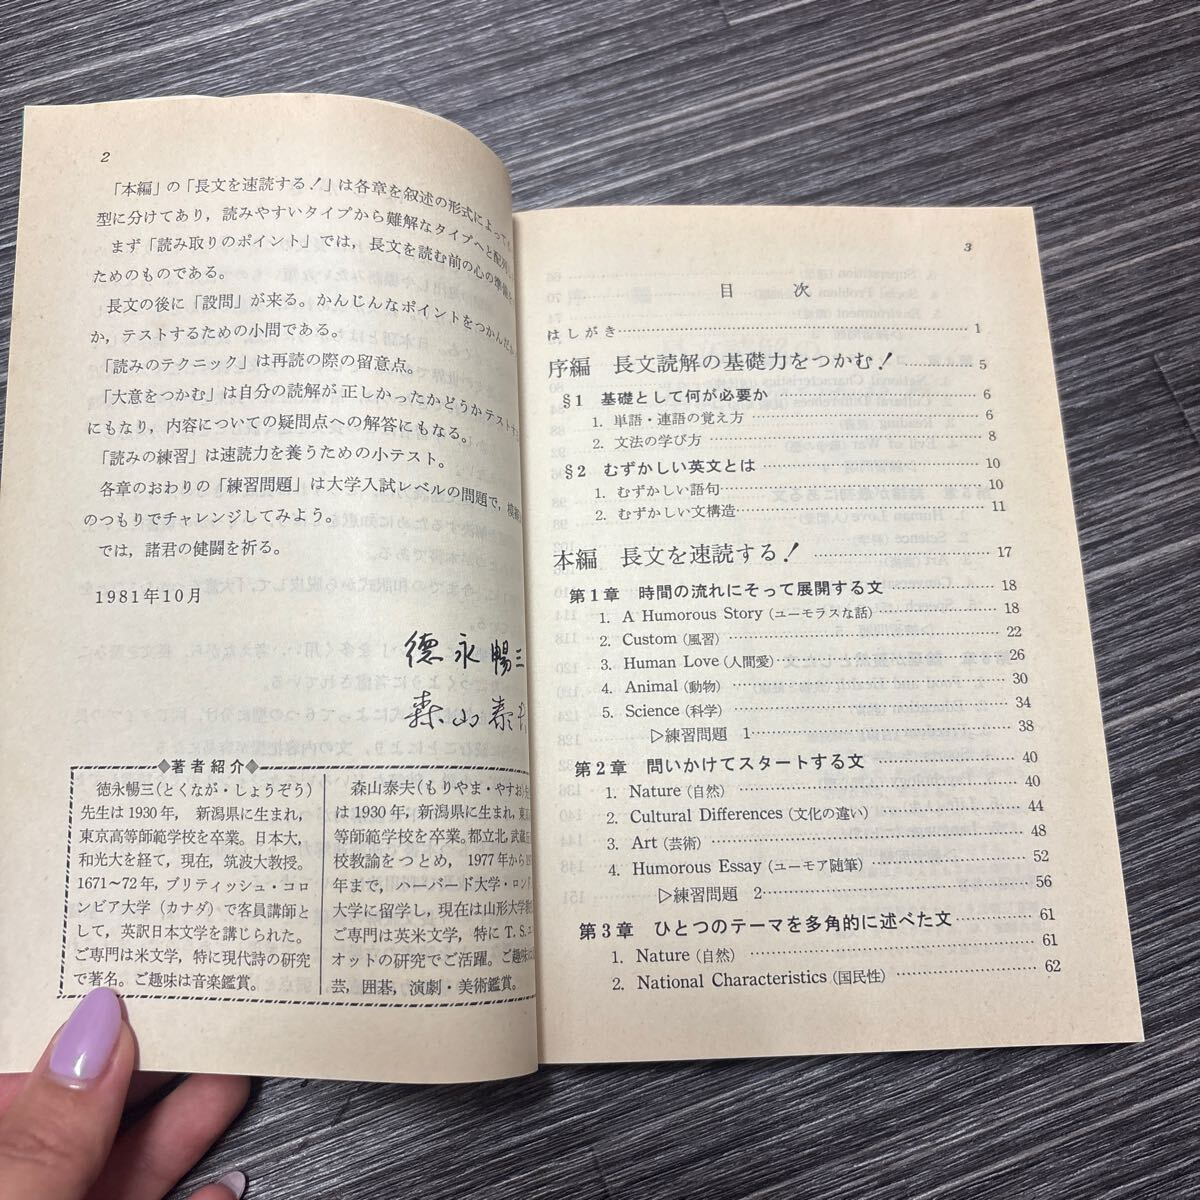 2
「本編」の「長文を速読する！」は各章を叙述の形式によって
型に分けてあり，読みやすいタイプから難解なタイプへと配列
まず「読み取りのポイント」では，長文を読む前の心の準備
ためのものである。
長文の後に「設問」が来る。かんじんなポイントをつかんだ
か，テストするための小問である。
「読みのテクニック」は再読の際の留意点。
「大意をつかむ」は自分の読解が正しかったかどうかテスト
にもなり，内容についての疑問点への解答にもなる。
「読みの練習」は速読力を養うための小テスト。
各章のおわりの「練習問題」は大学入試レベルの問題で，模
のつもりでチャレンジしてみよう。
では，諸君の健闘を祈る。
1981年10月
徳永暢三
森山泰
◆著者紹介◆
徳永暢三(とくなが・しょうぞう)
先生は1930年，新潟県に生まれ，
東京高等師範学校を卒業。日本大，
和光大を経て，現在，筑波大教授。
1671〜72年，ブリティッシュ・コロ
ンビア大学（カナダ）で客員講師と
して，英訳日本文学を講じられた。
ご専門は米文学，特に現代詩の研究
で著名。ご趣味は音楽鑑賞。
森山泰夫(もりやま・やすお)
は1930年，新潟県に生まれ，東
等師範学校を卒業。都立北，武蔵
校教諭をつとめ，1977年から
年まで，ハーバード大学・ロンド
大学に留学し，現在は山形大学
ご専門は英米文学，特にT.S.エ
オットの研究でご活躍。ご趣味
芸，囲碁，演劇・美術鑑賞。
3
目次
はしがき……1
序編 長文読解の基礎力をつかむ！……5
§1 基礎として何が必要か……6
1. 単語・連語の覚え方……6
2. 文法の学び方……8
§2 むずかしい英文とは……10
1. むずかしい語句……10
2. むずかしい文構造……11
本編 長文を速読する！……17
第1章 時間の流れにそって展開する文……18
1. A Humorous Story (ユーモラスな話)……18
2. Custom (風習)……22
3. Human Love (人間愛)……26
4. Animal (動物)……30
5. Science (科学)……34
▷練習問題 1……38
第2章 問いかけてスタートする文……40
1. Nature (自然)……40
2. Cultural Differences (文化の違い)……44
3. Art (芸術)……48
4. Humorous Essay (ユーモア随筆)……52
▷練習問題 2……56
第3章 ひとつのテーマを多角的に述べた文……61
1. Nature (自然)……61
2. National Characteristics (国民性)……62